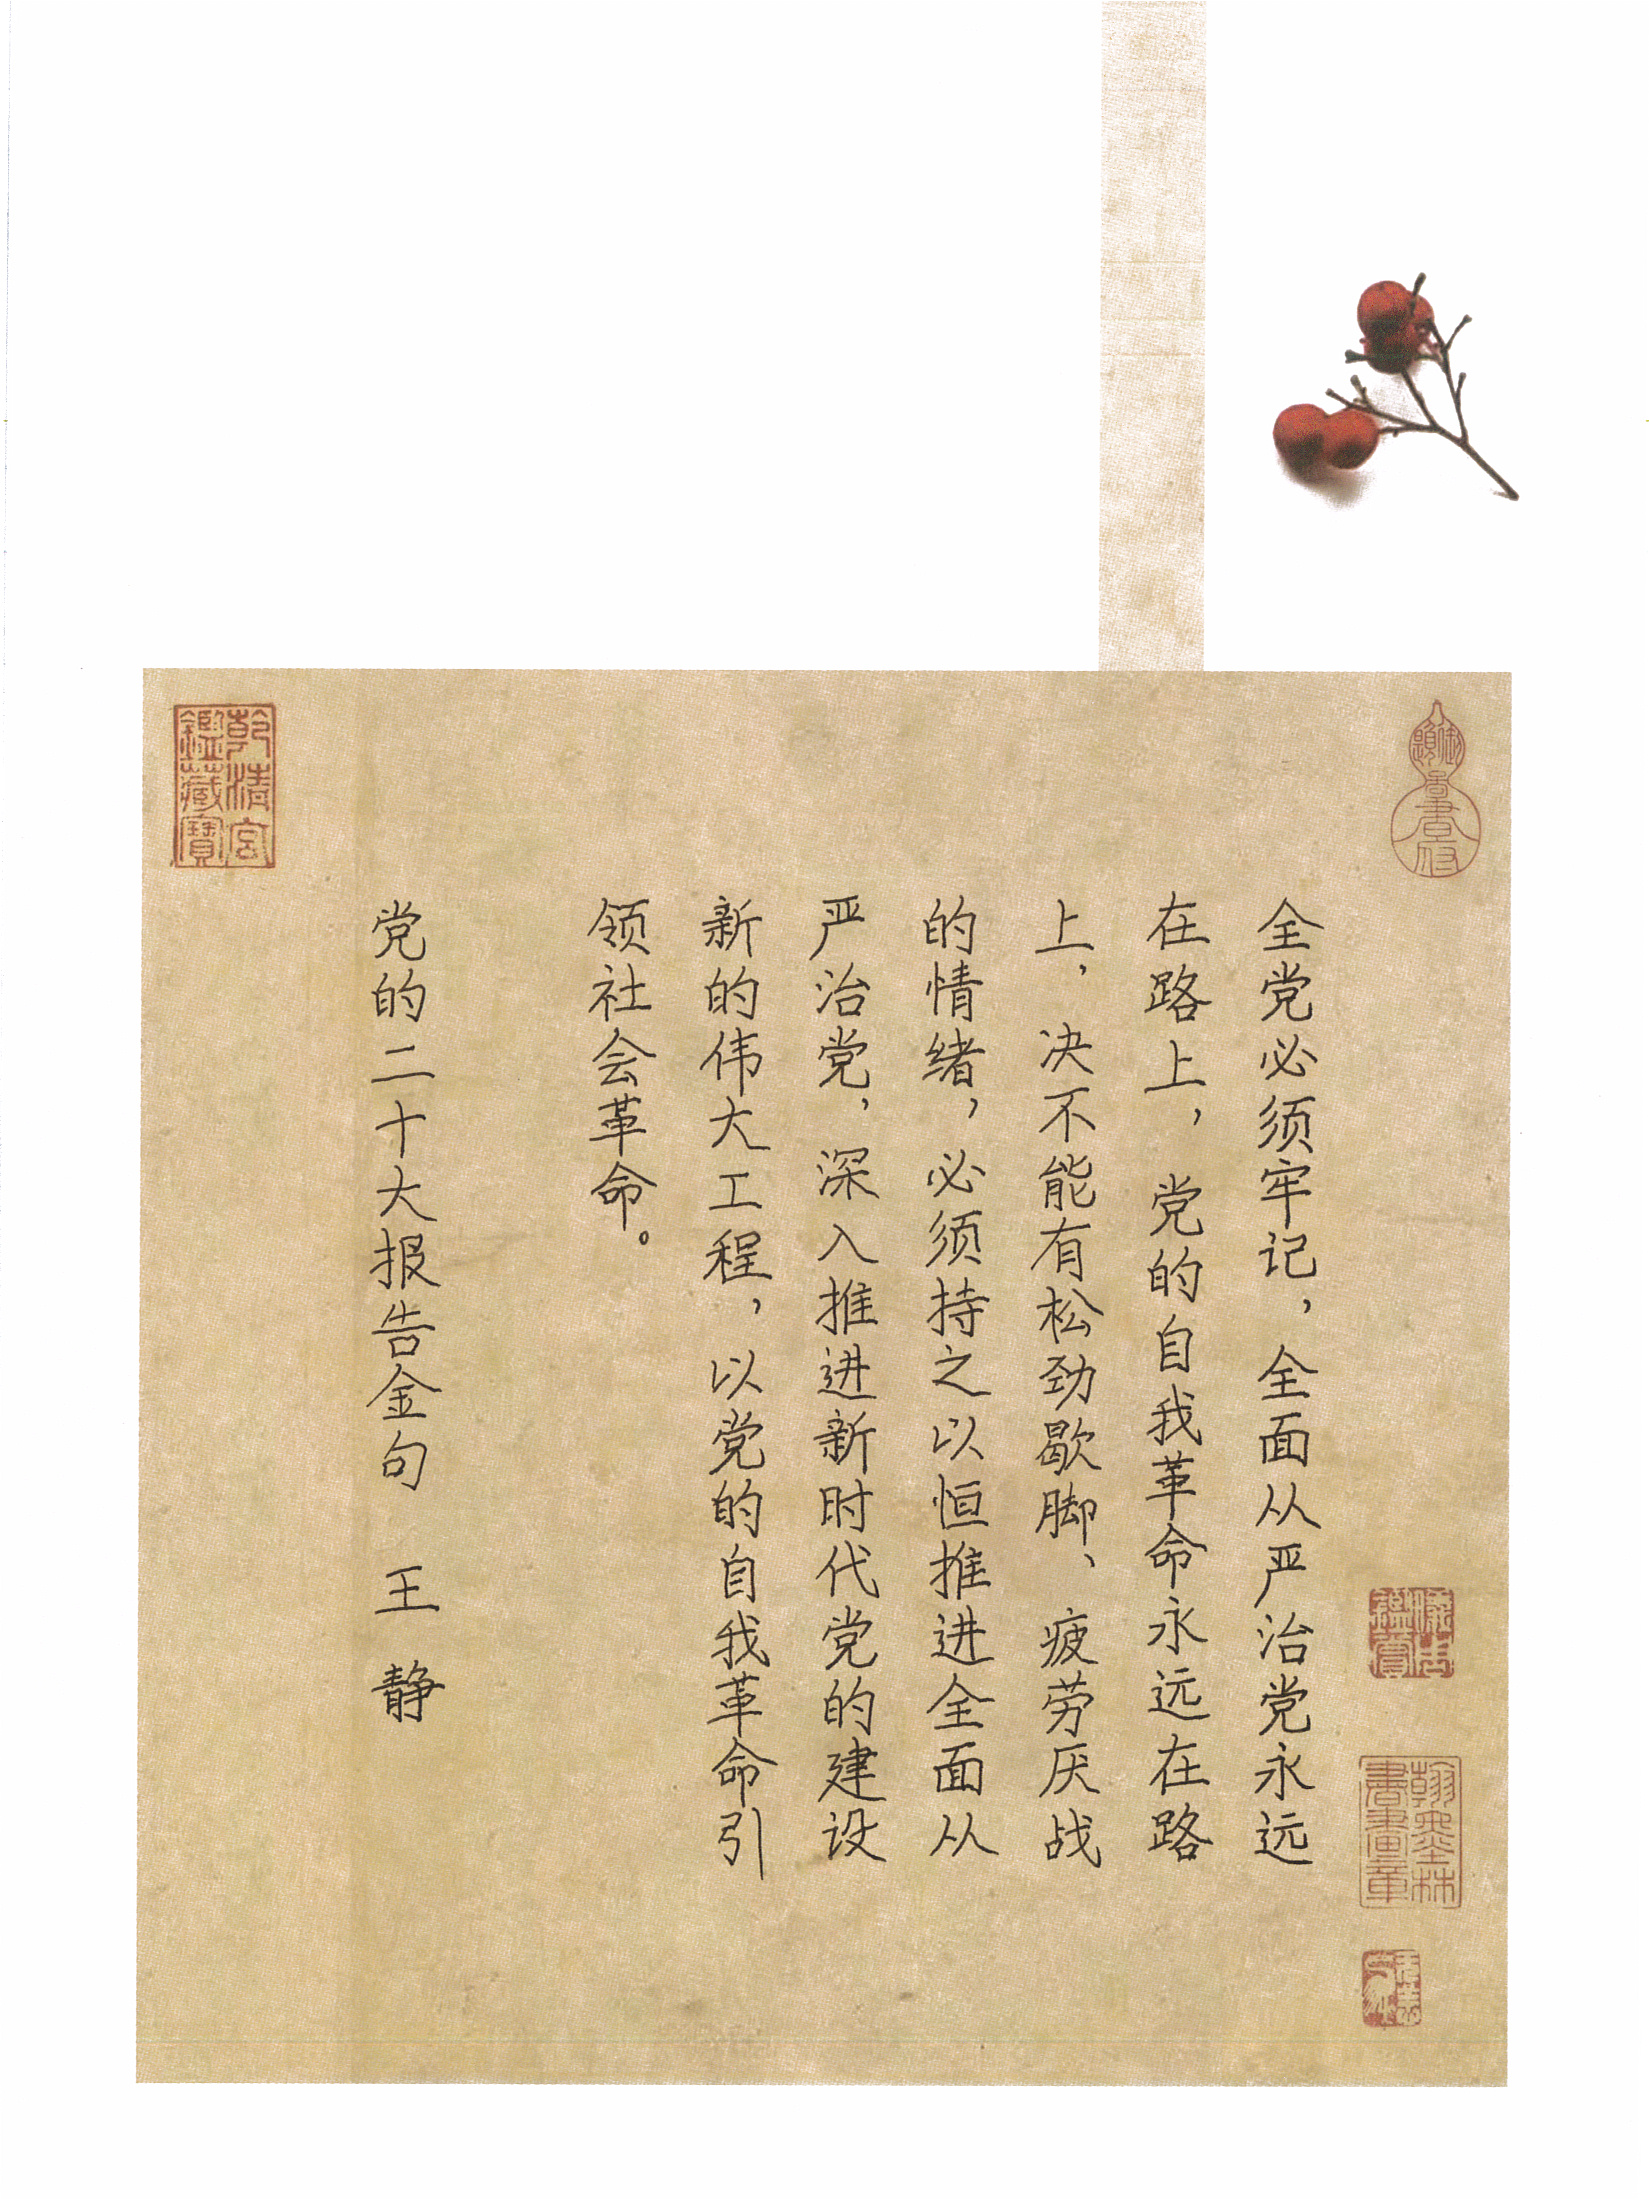 全党必须牢记，全面从严治党永远
在路上，党的自我革命永远在路
上，决不能有松劲歇脚、疲劳厌战
的情绪，必须持之以恒推进全面从
严治党，深入推进新时代党的建设
新的伟大工程，以党的自我革命引
领社会革命。
党的二十大报告金句 王静
乾清宫
鑑藏寳
翰墨林
書畫章